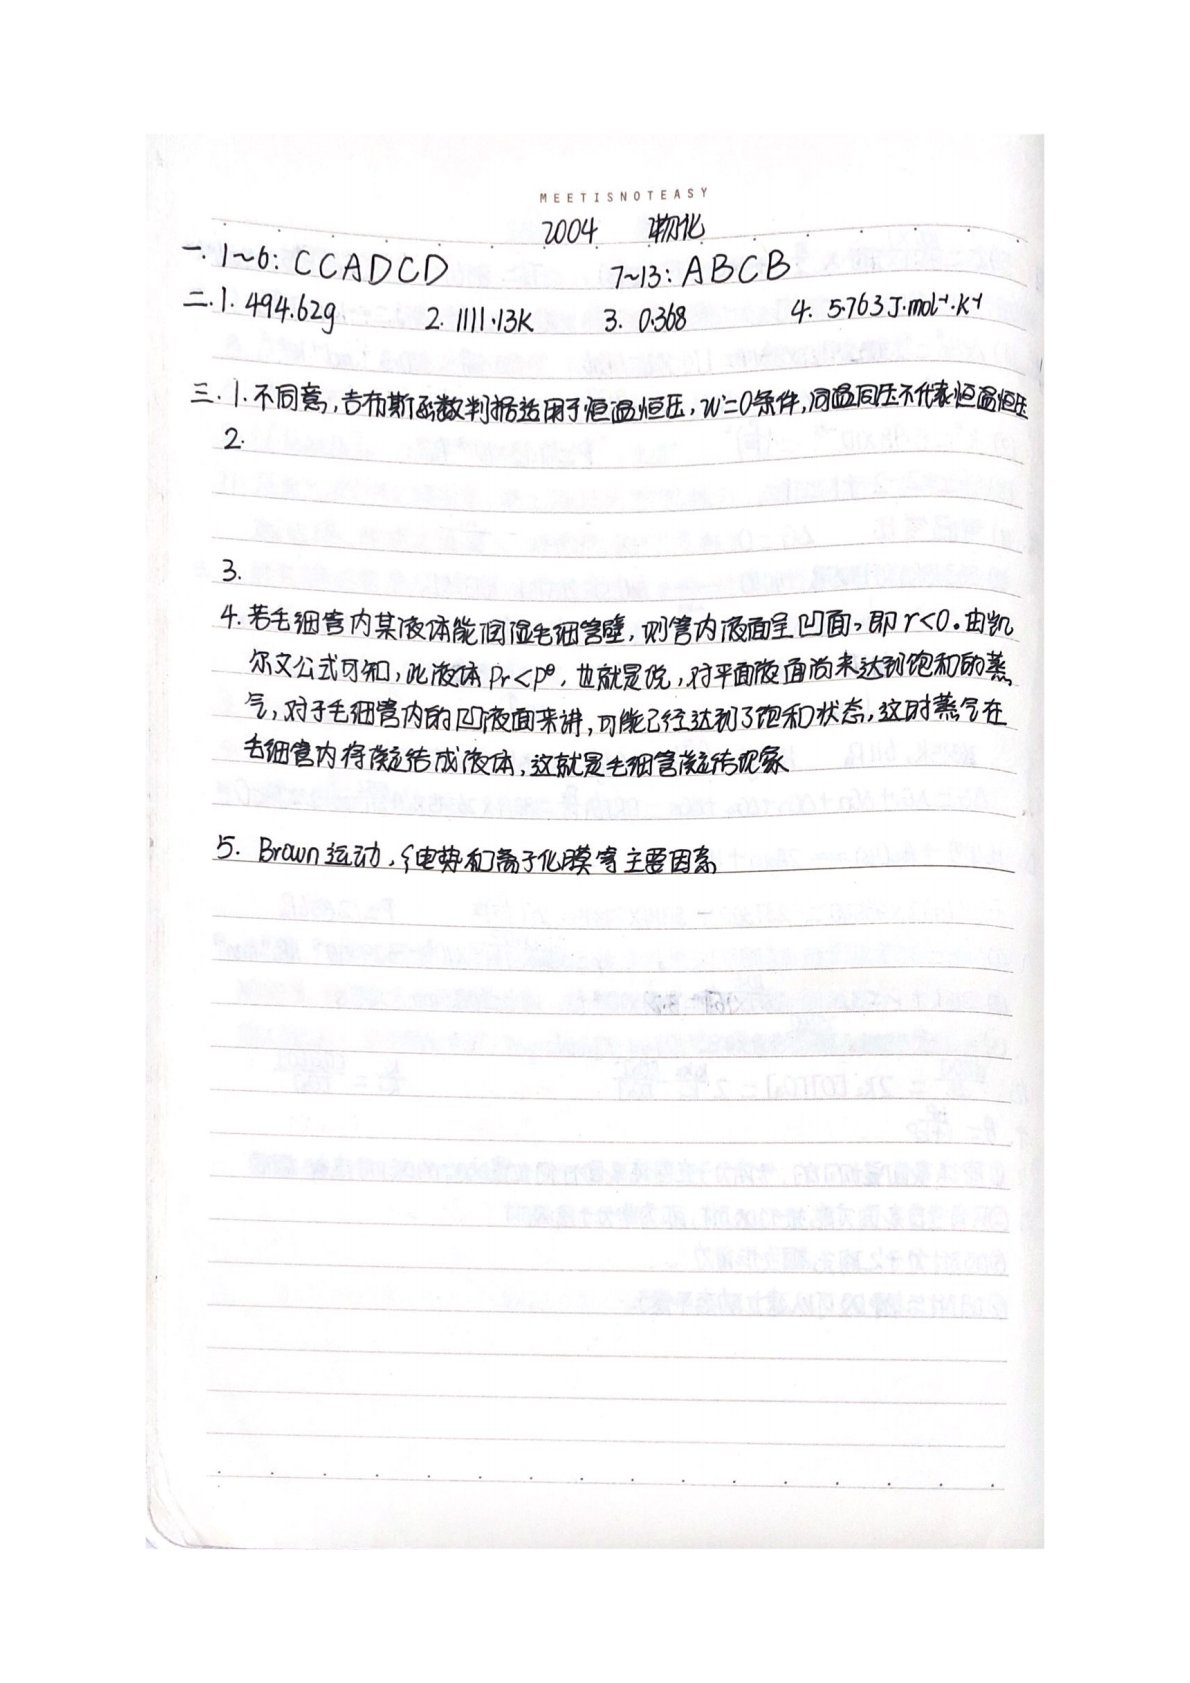 MEETISNOTEASY
2004 物化
一. 1~6: CCADCD 7~13: ABCB
二. 1. 494.62g 2. 1111.13K 3. 0.368 4. 5.763 J·mol⁻¹·K⁻¹
三. 1. 不同意, 吉布斯函数判据适用于恒温恒压, W'=0条件, 同温同压不代表恒温恒压
2.
3.
4. 若毛细管内某液体能润湿毛细管壁, 则管内液面呈凹面, 即 r<0. 由凯
尔文公式可知, 此液体 Pr<P°, 也就是说, 对平面液面尚未达到饱和的蒸
气, 对于毛细管内的凹液面来讲, 可能已经达到了饱和状态, 这时蒸气在
毛细管内将凝结成液体, 这就是毛细管凝结现象
5. Brown运动, ζ电势和离子化膜等主要因素